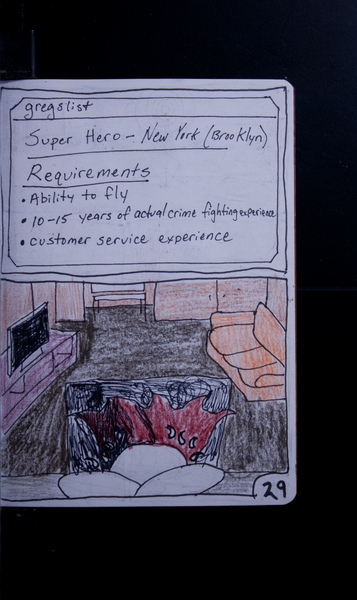 gregslist
Super Hero - New York (Brooklyn)
Requirements
• Ability to fly
• 10-15 years of actual crime fighting experience
• customer service experience
29